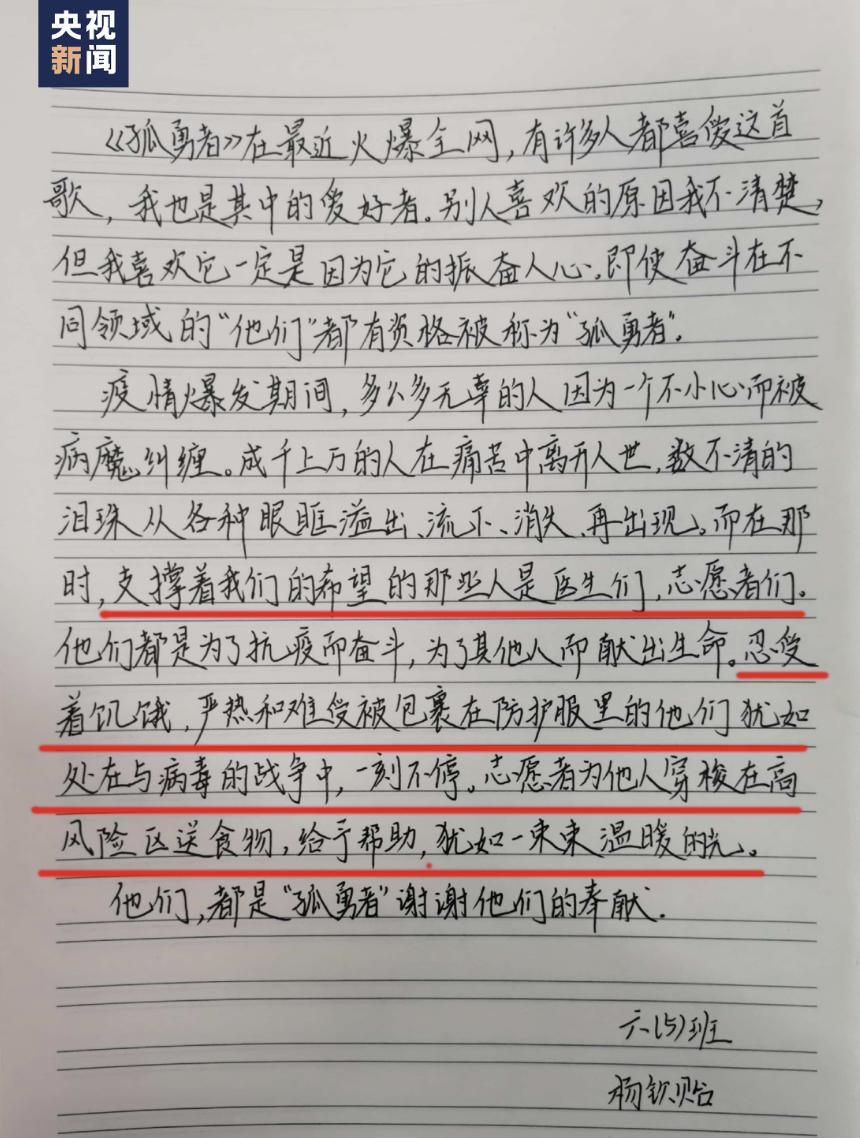 央视
新闻
《孤勇者》在最近火爆全网，有许多人都喜爱这首
歌，我也是其中的爱好者。别人喜欢的原因我不清楚，
但我喜欢它一定是因为它的振奋人心。即使奋斗在不
同领域的“他们”都有资格被称为“孤勇者”。
疫情爆发期间，多么多无辜的人因为一个不小心而被
病魔纠缠。成千上万的人在痛苦中离开人世，数不清的
泪珠从各种眼眶溢出、流下、消失、再出现。而在那
时，支撑着我们的希望的那些人是医生们，志愿者们。
他们都是为了抗疫而奋斗，为了其他人而献出生命。忍受
着饥饿，严热和难受被包裹在防护服里的他们犹如
处在与病毒的战争中，一刻不停。志愿者为他人穿梭在高
风险区送食物，给予帮助，犹如一束束温暖的光。
他们，都是“孤勇者”谢谢他们的奉献．
六(5)班
杨钦贻